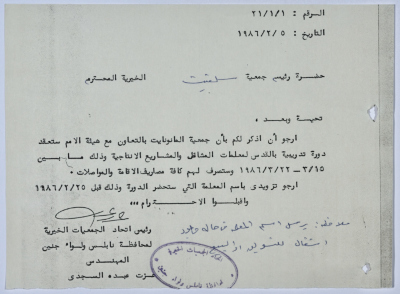 الرقم : ٢١/١/١
التاريخ : ١٩٨٦/٢/٥
حضرة رئيس جمعية سلفيت الخيرية المحترم
تحيـة وبعـد ،
ارجو أن اذكر لكم بأن جمعية المانونايت بالتعاون مع هيئة الامم ستعقد
دورة تدريبية بالقدس لمعلمات المشاغل والمشاريع الانتاجية وذلك ما بين
٣/١٥ – ١٩٨٦/٣/٢٢ وستصرف لهم كافة مصاريف الاقامة والمواصلات ٠
ارجو تزويدي باسم المعلمة التي ستحضر الدورة وذلك قبل ١٩٨٦/٢/٢٥
واقبلوا الاحـترام ،،،
رئيس اتحاد الجمعيات الخيرية
لمحافظة نابلس ولواء جنين
المهندس
عزت عبده السجدي
يرسل اسم